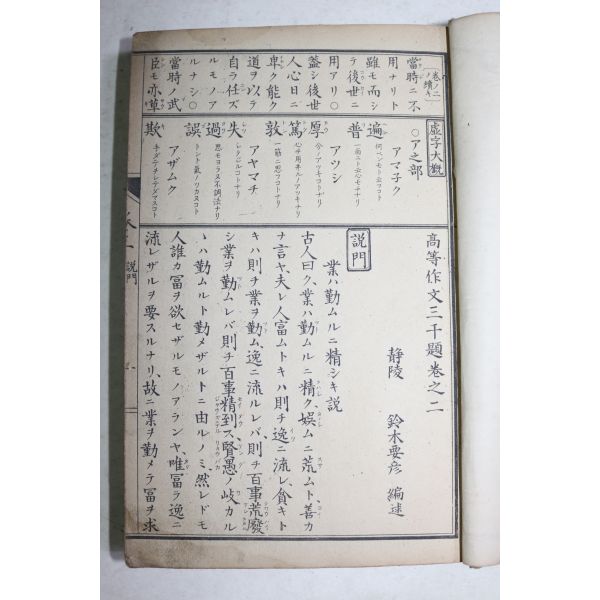 高等作文三千題卷之二
静陵 鈴木要彦 編述
説門
業ハ勤ムルニ精シキ説
古人曰ク、業ハ勤ムルニ精ク、娯ムニ荒ムト、善カ
ナ言ヤ、夫レ人富ムトキハ則チ逸ニ流レ、貧キト
キハ則チ業ヲ勤ム、逸ニ流ルレバ、則チ百事荒廢
シ業ヲ勤ムレバ則チ百事精到ス、賢愚ノ岐カル
ヽハ勤ムルト勤メザルトニ由ルノミ、然レドモ
人誰カ冨ヲ欲セザルモノアランヤ、唯冨ラ逸ニ
流レザルヲ要スルナリ、故ニ業ヲ勤メテ冨ヲ求
虚字大觀
○ア之部
遍 アマチク
普
厚 アツシ
篤
敦
失 アヤマチ
過
誤
欺 アザムク
卷ノ二ノ續キ
當時ニ不
用ナリト
雖モ而シ
テ後世ニ
用アリ○
蓋シ後世
人心日ニ
卑ク能ク
道ヲ以テ
自ラ任ズ
ルモノア
ルナシ○
當時ノ武
臣モ亦
説門